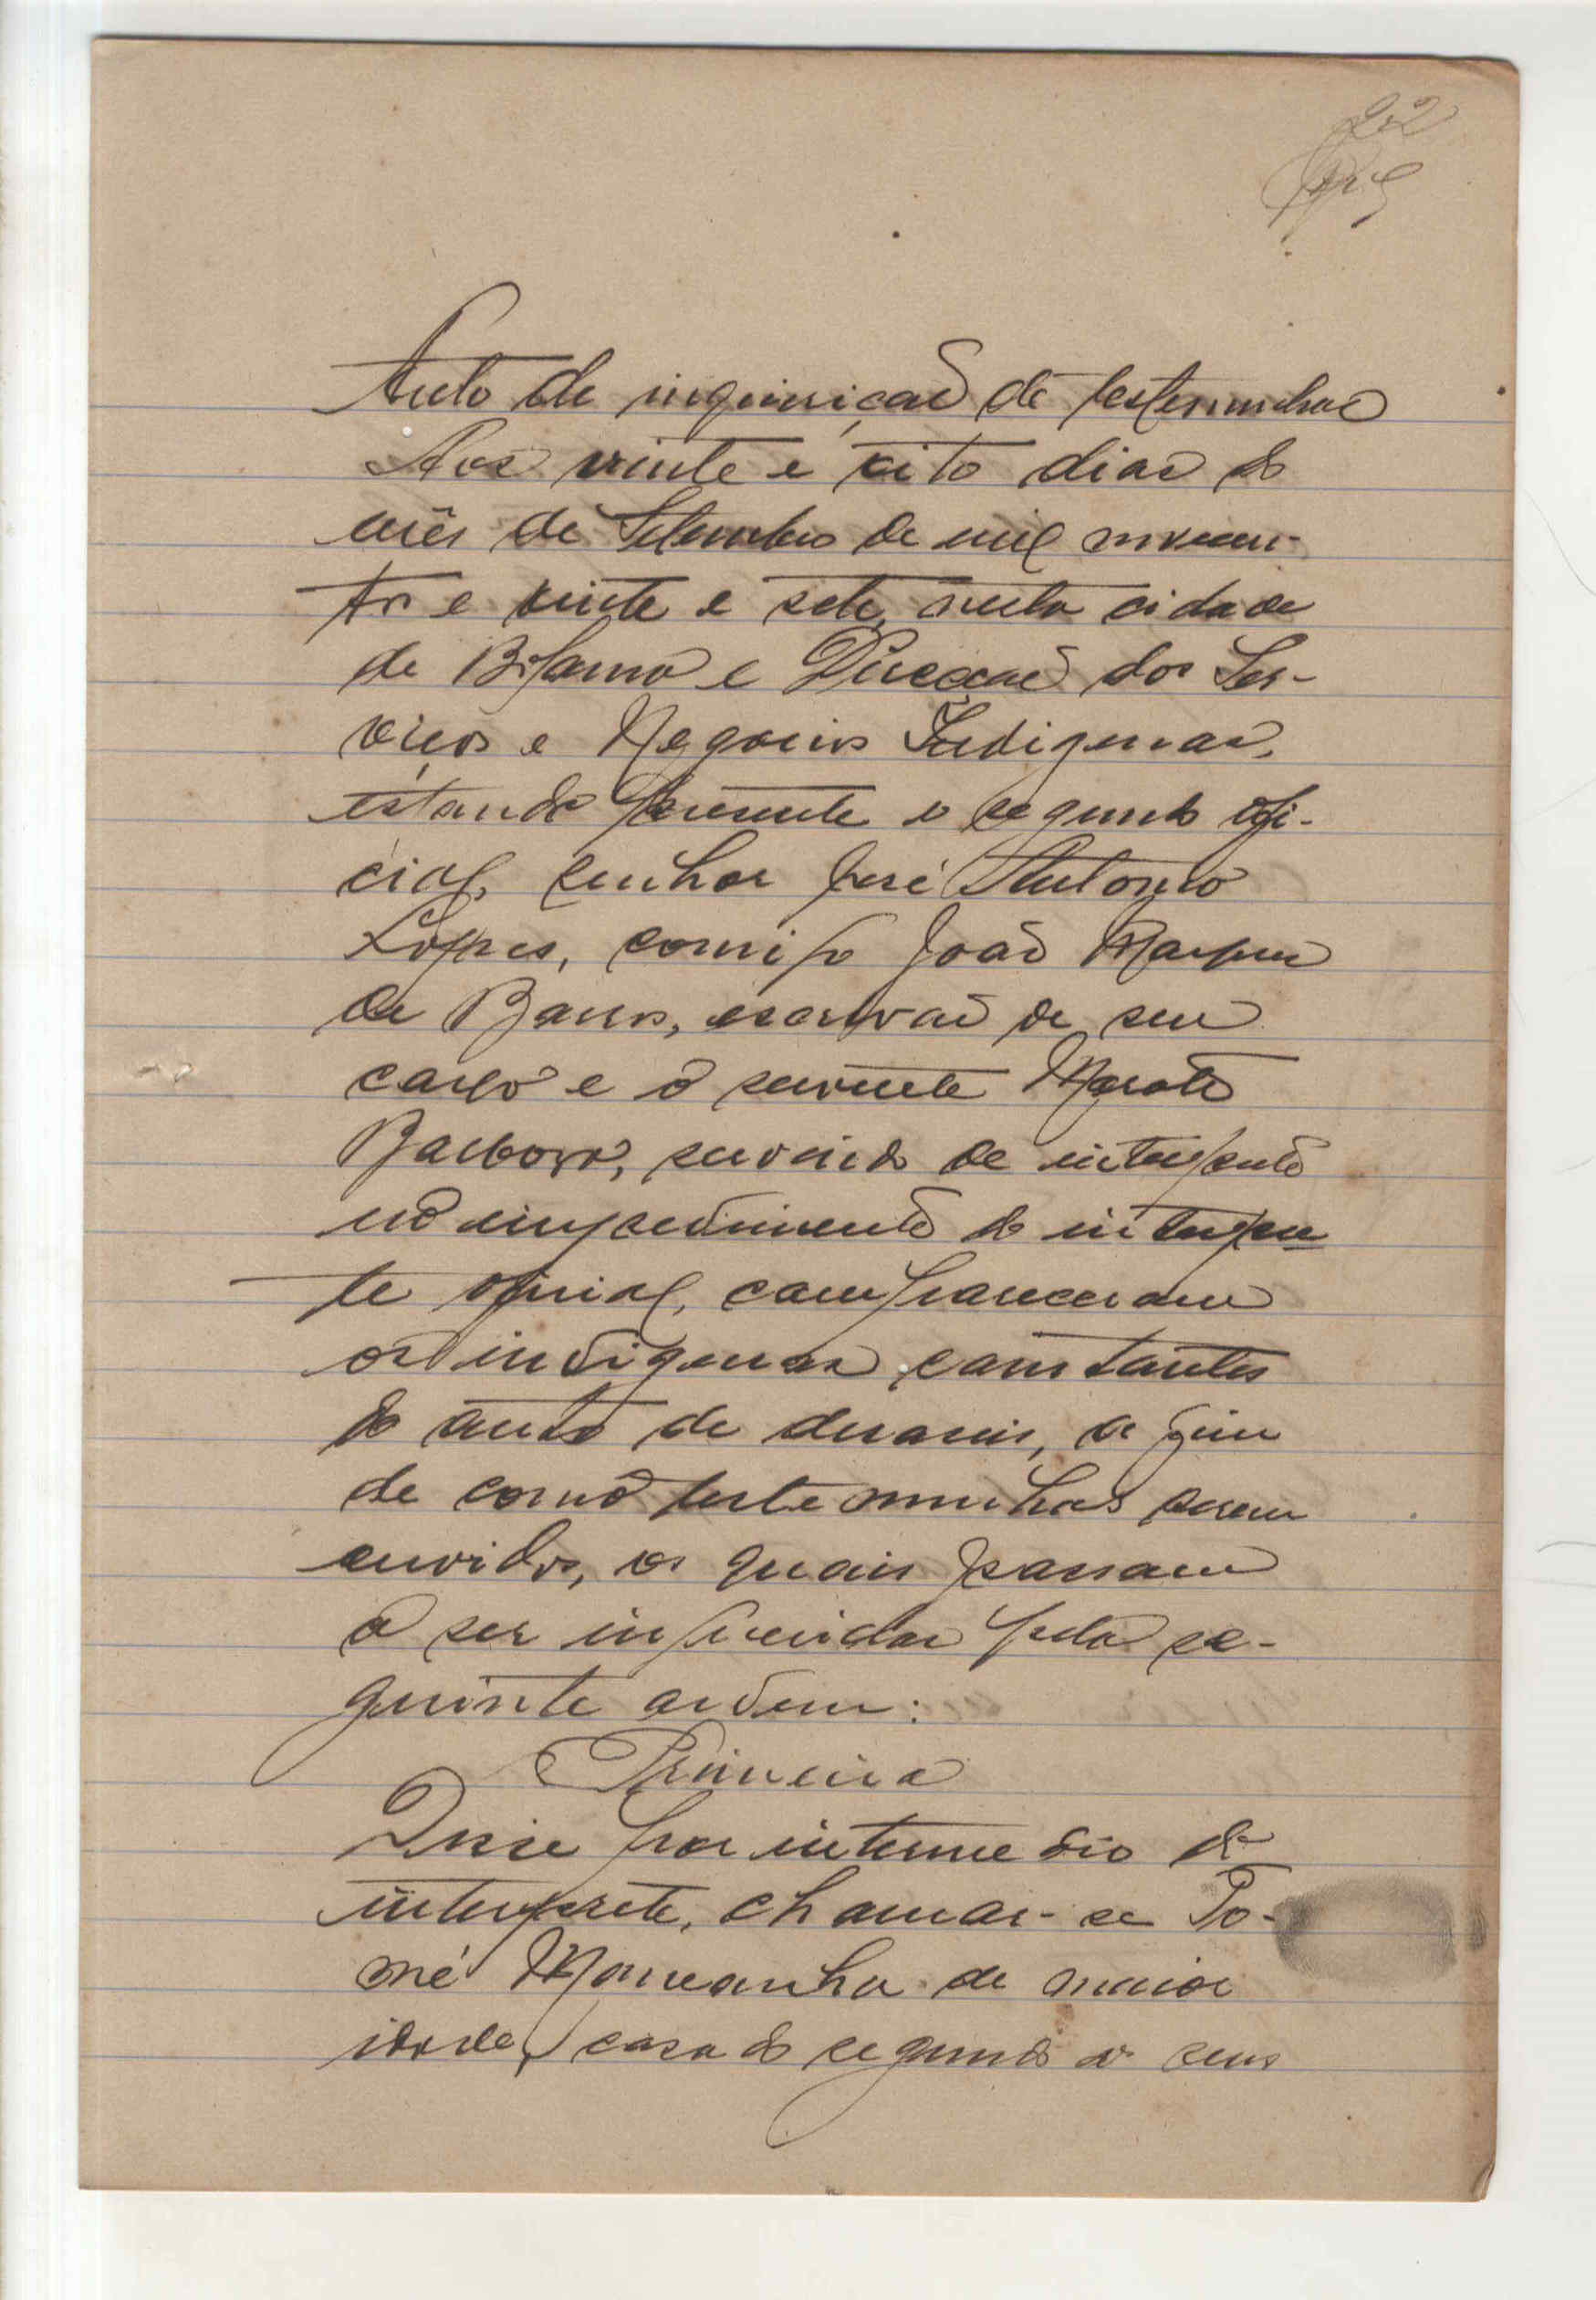 22
Auto de inquirição de testemunhas
Aos vinte e oito dias do
mês de Setembro de mil novecen-
tos e vinte e sete, nesta cidade
de Bolama e Direcção dos Ser-
viços e Negocios Indigenas,
estando presente o segundo ofi-
cial, senhor José Antonio
Lopes, comigo João Marques
de Barros, escrivão de seu
cargo e o servente
Barbosa, servindo de interprete
no impedimento do interpre-
te oficial, compareceram
os indigenas constantes
do auto de
de como testemunhas serem
ouvidos, os quais passam
a ser inqueridos pela se-
guinte ordem:
Primeira
Disse por intermedio do
interprete, chamar-se To-
mé de maior
idade, casado segundo os seus